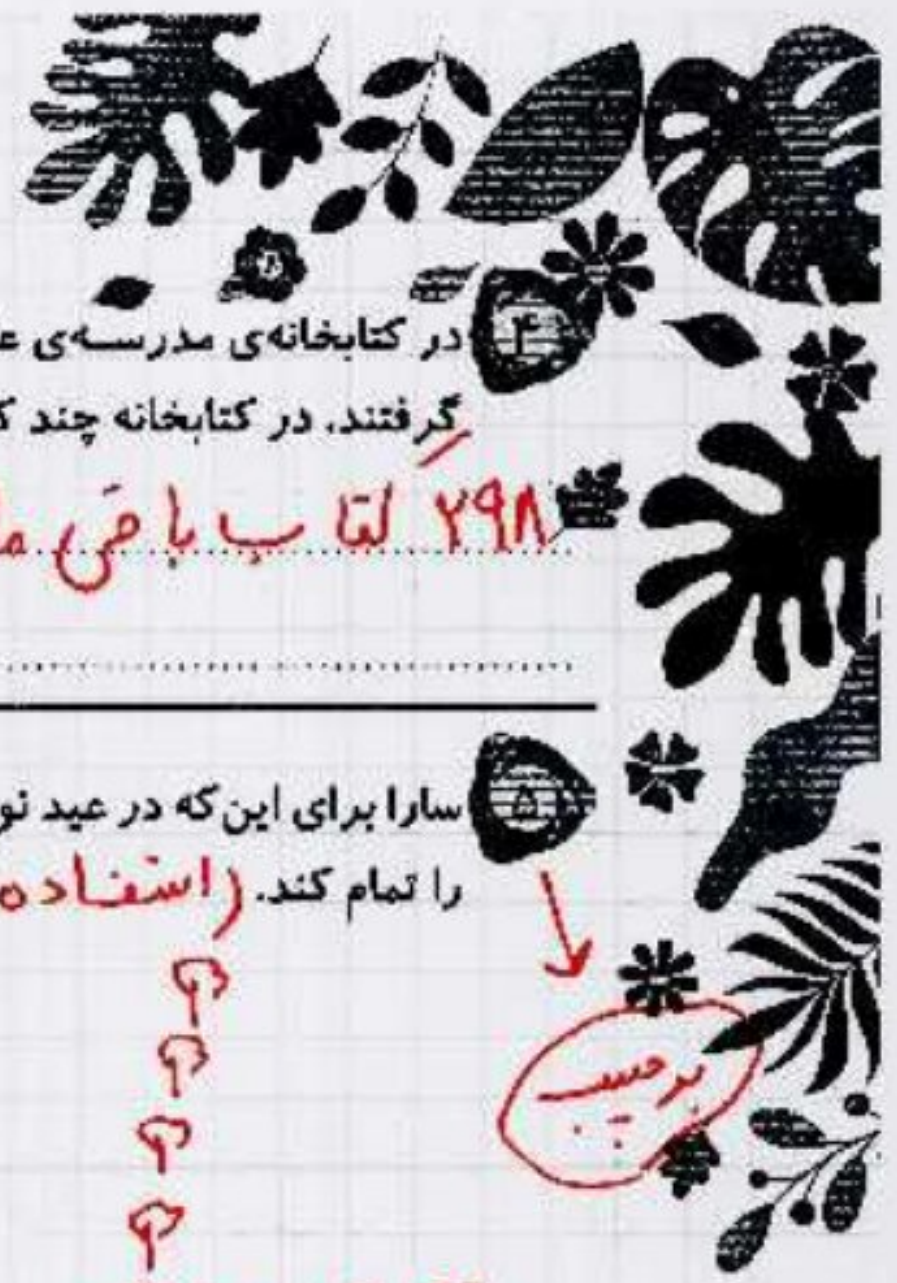 ۴
در کتابخانه‌ی مدرسه‌ی
گرفتند. در کتابخانه چند
۲۹۸ کتاب باقی
۵
سارا برای این‌که در عید
را تمام کند. (استفاده
برچسب